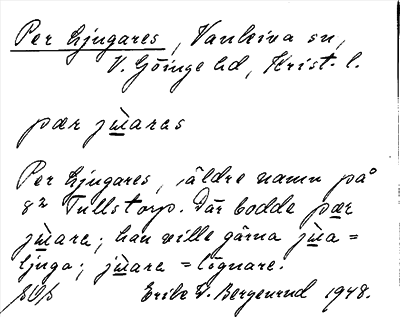 Per Ljugares, Vankiva sn,
V. Göinge hd, Krist. l.
pær jùaras
Per Ljugares, äldre namn på
8² Tullstorp. Där bodde pær
jùara; han ville gärna jùa =
ljuga; jùara = lögnare.
Erik W. Bergenrud 1948.